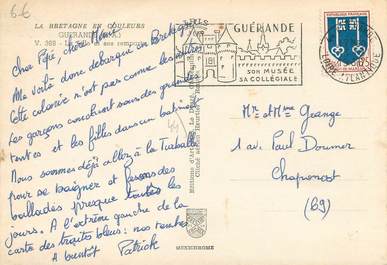 6-6
LA BRETAGNE EN COULEURS
GUÉRANDE
V. 368 - La et ses remparts
Cher Pépé, chère Mémé
Me voilà donc débarqué en Bretagne
Cette colonie n'est pas comme les autres
Les garçons couchent sous des grandes
tentes et les filles dans un bâtiment
Nous sommes déjà allés à la Turballe
pour se baigner et faisons des
ballades presque toutes les
jours. A l'extrême gauche de la
carte des traits bleus : nos tentes
A bientôt Patrick
44
Editions d'Art
MEXICHROME
GUÉRANDE
SON MUSÉE
SA COLLÉGIALE
LOIRE ATLANTIQUE
Mr et Mme Grange
1 av. Paul Doumer
Chaponost
(69)